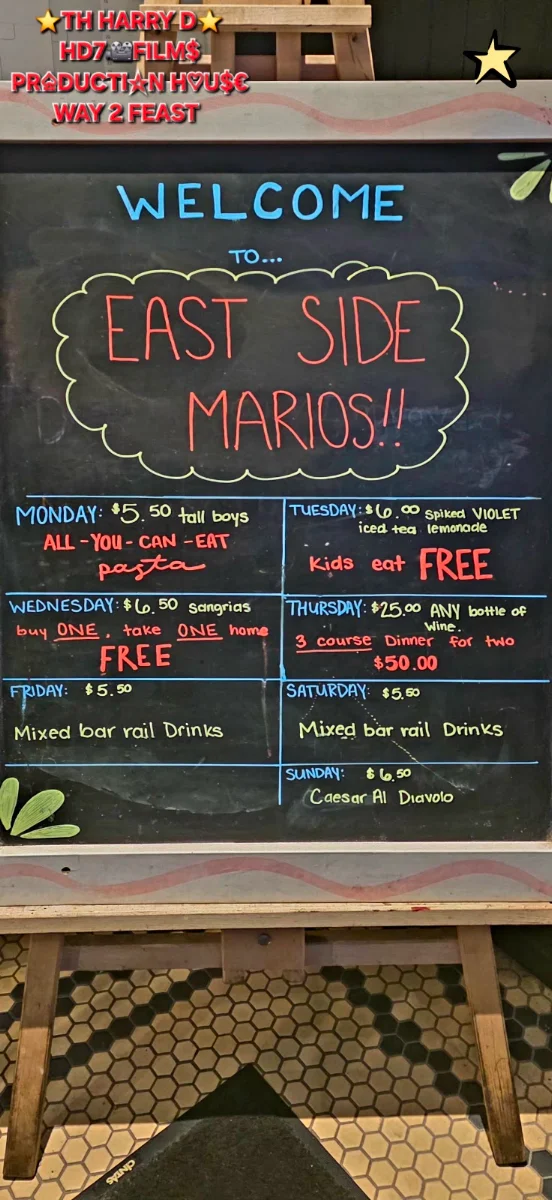 ⭐TH HARRY D⭐
HD7🎥FILM$
PRⒶDUCTI☆N H♡U$€
WAY 2 FEAST
WELCOME
TO...
EAST SIDE
MARIOS!!
MONDAY: $5.50 tall boys
ALL-YOU-CAN-EAT
pasta
TUESDAY: $6.00 Spiked VIOLET
iced tea lemonade
Kids eat FREE
WEDNESDAY: $6.50 Sangrias
buy ONE, take ONE home
FREE
THURSDAY: $25.00 ANY bottle of
Wine.
3 course Dinner for two
$50.00
FRIDAY: $5.50
Mixed bar rail Drinks
SATURDAY: $5.50
Mixed bar rail Drinks
SUNDAY: $6.50
Caesar Al Diavolo
CINTAS